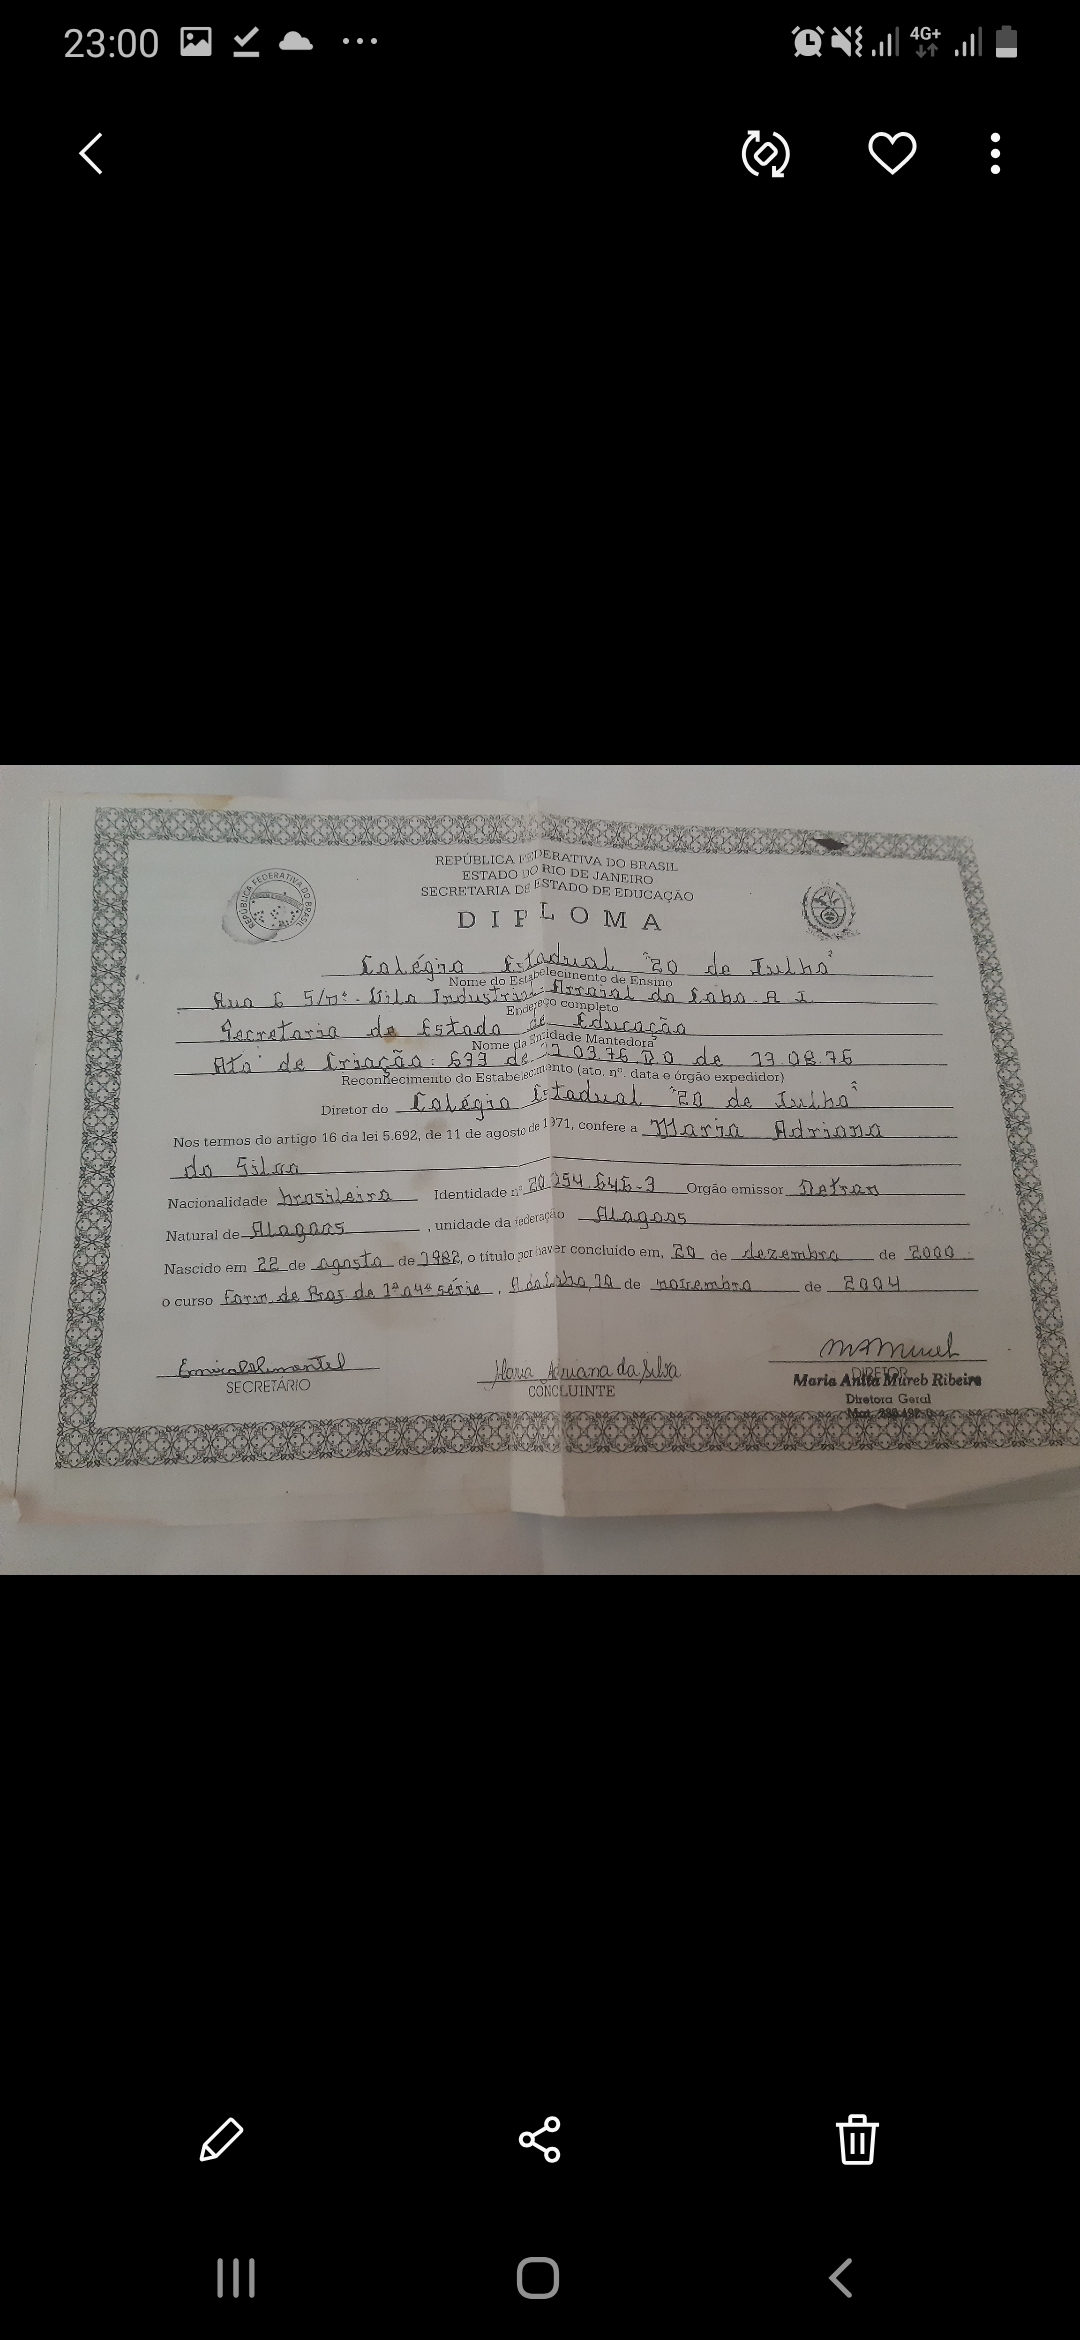 23:00
4G+
REPÚBLICA FEDERATIVA DO BRASIL
ESTADO DO RIO DE JANEIRO
SECRETARIA DE ESTADO DE EDUCAÇÃO
REPÚBLICA FEDERATIVA DO BRASIL
DIPLOMA
Colégio Estadual "20 de Julho"
Nome do Estabelecimento de Ensino
Rua E S/nº - Vila Industrial - Arraial do Cabo. R J.
Endereço completo
Secretaria de Estado de Educação
Nome da Entidade Mantedora
Ato de Criação: de D.O de 13.08.76
Reconhecimento do Estabelecimento (ato, nº. data e órgão expedidor)
Diretor do Colégio Estadual "20 de Julho"
Nos termos do artigo 16 da lei 5.692, de 11 de agosto de 1971, confere a Maria Adriana
da Silva
Nacionalidade brasileira Identidade nº Orgão emissor Detran
Natural de Alagoas, unidade da federação Alagoas
Nascido em 22 de agosto de 1982, o título por haver concluído em, 20 de dezembro de 2000
o curso Form. de Prof de 1ª a 4ª série, A. do Cabo, de novembro de 2004
Maria Adriana da Silva
SECRETÁRIO
CONCLUINTE
DIRETOR
Maria Anita Mureb Ribeiro
Diretora Geral